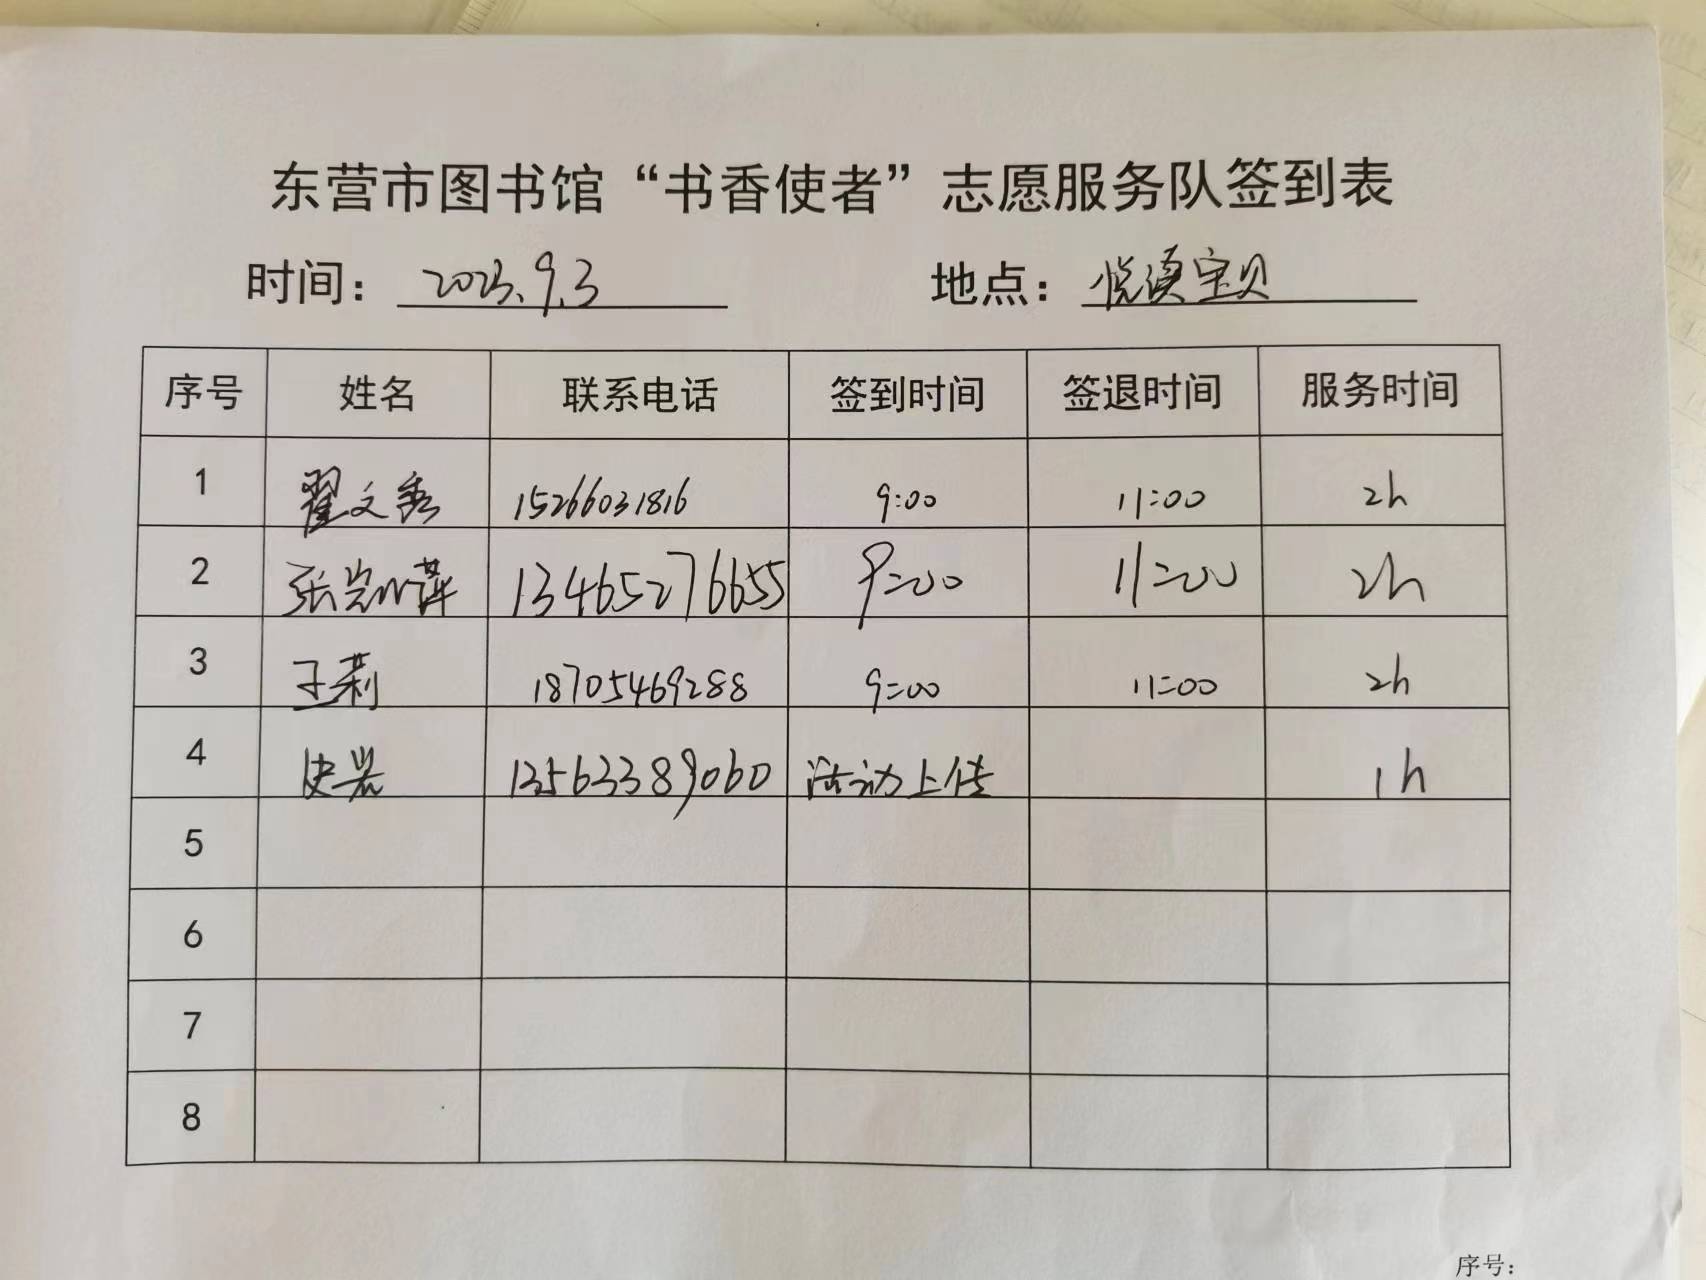 东营市图书馆“书香使者”志愿服务队签到表
时间：2023.9.3 地点：悦读宝贝
序号 姓名 联系电话 签到时间 签退时间 服务时间
1 翟文秀 15266031816 9:00 11:00 2h
2 张 萍 13465276655 9:00 11:00 2h
3 王莉 18705469288 9:00 11:00 2h
4 史岩 13563389060 活动上传 1h
5
6
7
8
序号：